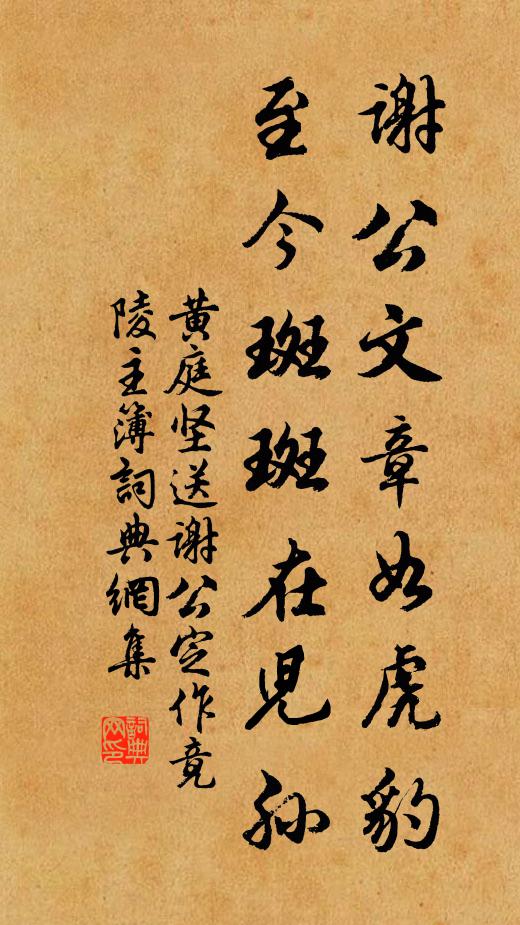 谢公文章如虎豹
至今斑斑在児孙
黄庭坚送谢公定作竟
陵主簿詞典網集
詞典
网印